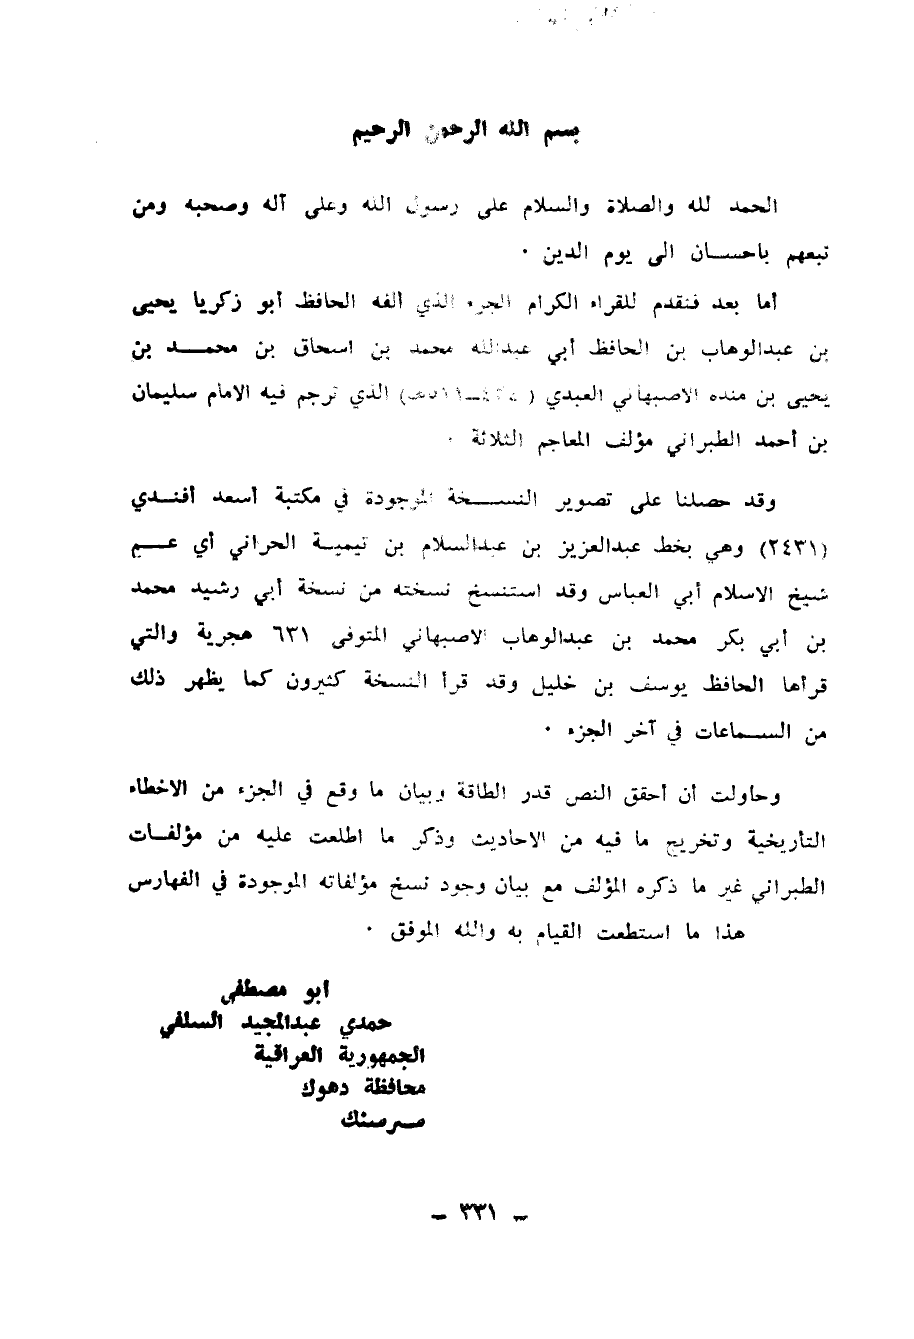 بسم الله الرحمن الرحيم
الحمد لله والصلاة والسلام على رسول الله وعلى آله وصحبه ومن
تبعهم باحسان الى يوم الدين ٠
أما بعد فنقدم للقراء الكرام الجزء الذي ألفه الحافظ أبو زكريا يحيى
بن عبدالوهاب بن الحافظ أبي عبدالله محمد بن اسحاق بن محمد بن
يحيى بن منده الاصبهاني العبدي الذي ترجم فيه الامام سليمان
بن أحمد الطبراني مؤلف المعاجم الثلاثة ٠
وقد حصلنا على تصوير النسخة الموجودة في مكتبة أسعد أفندي
(٢٤٣١) وهي بخط عبدالعزيز بن عبدالسلام بن تيمية الحراني أي عم
شيخ الاسلام أبي العباس وقد استنسخ نسخته من نسخة أبي رشيد محمد
بن أبي بكر محمد بن عبدالوهاب الاصبهاني المتوفى ٦٣١ هجرية والتي
قرأها الحافظ يوسف بن خليل وقد قرأ النسخة كثيرون كما يظهر ذلك
من السماعات في آخر الجزء ٠
وحاولت أن أحقق النص قدر الطاقة وبيان ما وقع في الجزء من الاخطاء
التأريخية وتخريج ما فيه من الاحاديث وذكر ما اطلعت عليه من مؤلفات
الطبراني غير ما ذكره المؤلف مع بيان وجود نسخ مؤلفاته الموجودة في الفهارس
هذا ما استطعت القيام به والله الموفق ٠
أبو مصطفى
حمدي عبدالمجيد السلفي
الجمهورية العراقية
محافظة دهوك
سرسنك
– ٣٣١ –